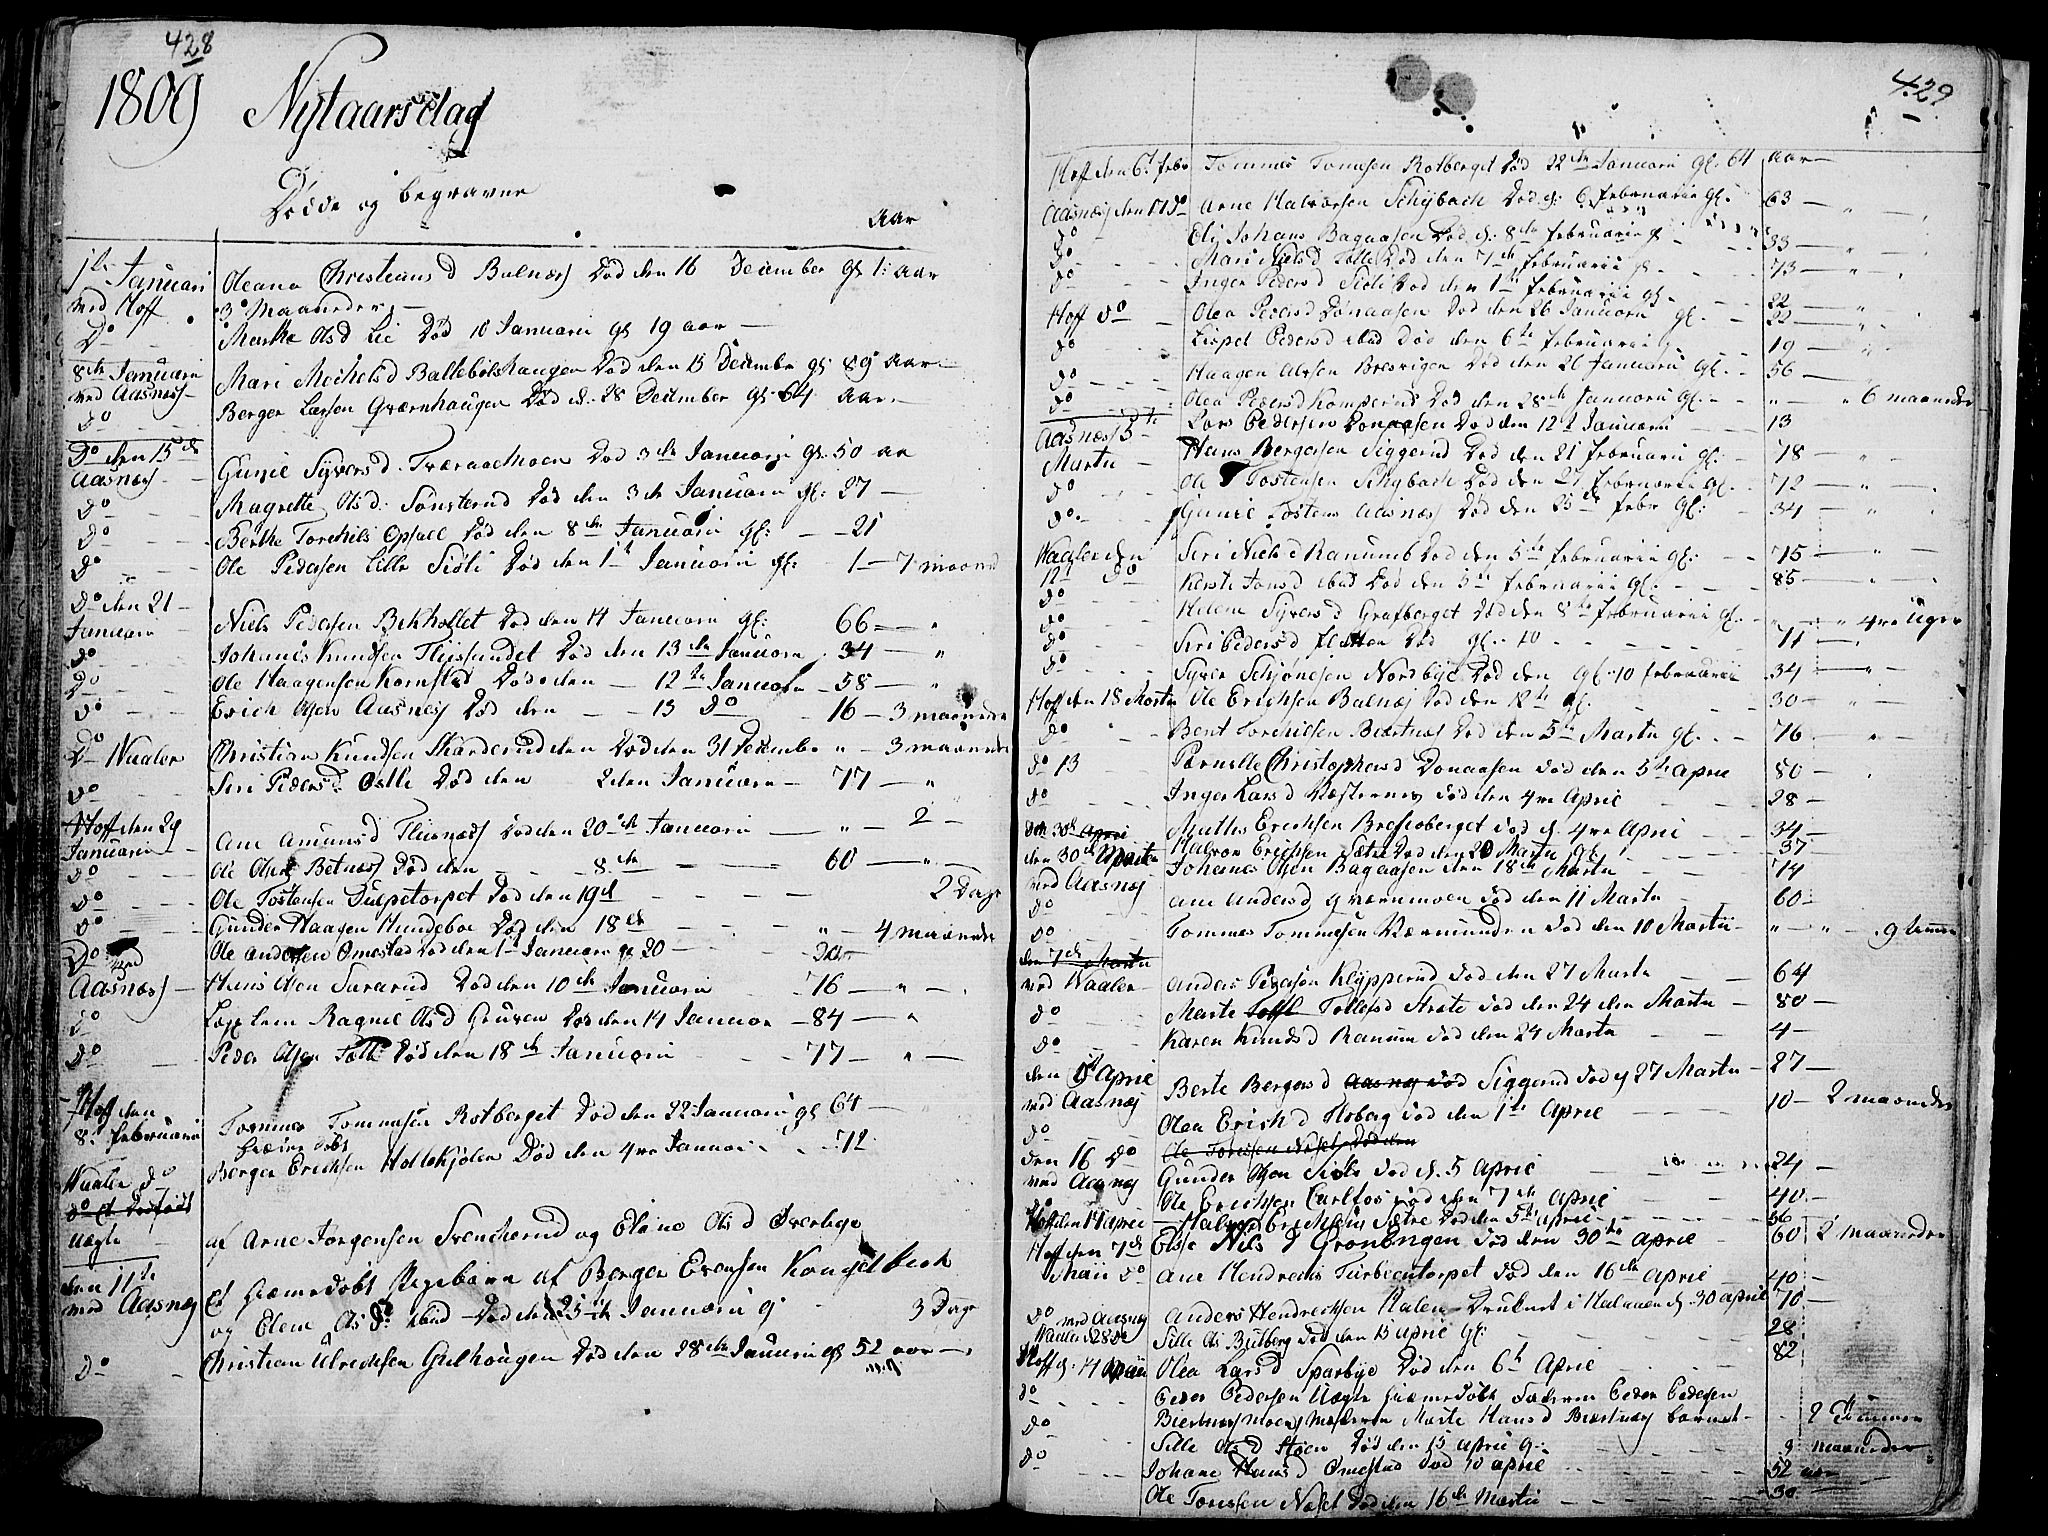 428
1809 Nytaarsdag
Döde og begravne
Aar
1te Januari Oleana Christians d Balnæss Död den 16 December gl 1: aar
ved Hoff 3 Maaneder
Do Marthe Ols d Lie Död 10 Januari gl 19 aar
8de Januari Mari Michels d Ballebölshaugen Död den 15 Decembr gl 89 Aar
ved Aasnæss
Do Berger Larsen Qværnhaugen Död d. 28 December gl 64 Aar
Do den 15de Gunil Syvers d. Tværaaemoen Död 3de Januari gl. 50 aar
Aasnæss
Do Magrette Ols d. Sönsterud Död den 3de Januari gl: 27
Do Berthe Torchils Opsall Död den 8de Januari gl: 21
Do Ole Pedersen Lille Sidli Död den 1te Januari gl: 1 7 maaned
Do den 21 Niels Pedersen Bekholtet Död den 14 Januari gl: 66
Januari
Johanes Knudsen Flissundet Död den 13de Januari 34
Do Ole Haagensen Kornstad Död den 12te Januari 58
Do Erich Olsen Aasnæss Död den 13 Do 16 3 maaneder
Do Waaler Christian Knudsen Skarderud den Död den 31 December " 3 maaneder
Do Siri Peders d. Östlie Död den 2den Januari 77 "
Hoff den 29 Ane Amunds d Flisnæss Död den 20de Januari " 2
Januari
Do Ole Olsen Betnæss Död den 8de 60 "
Do Ole Tostensen Dulpetorpet Död den 19de 2 Dage
Do Gunder Haagen Hundeboe Död den 18de " 4 maaneder
Do ved Ole Andersen Omestad Död den 1te Januari gl 20 20
Aasnæss Hans Olsen Sararud Död den 10de Januari 76 "
Do Legslem Ragnil Ols d Gruven Död den 14 Januar 84 "
Do Peder Olsen Tolli Död den 18de Januari 77 "
Hoff den Tommes Tommesen Rotberget Död den 22 Januari gl 64
8de februari
Waaler Do Berger Erichsen Hollekjölen Död den 4re Januari 72
Do Et Dödfödt
uægte af Arne Jorgensen Svencherud og Eline Ols d Överbye
den 11te Et hiemedöbt Pigebarn af Berger Evensen Kongelbech
ved Aasnæss og Elene Ols d ibid Död den 25de Januari gl 3 Dage
Do Christian Ulrichsen Gulhougen Död den 28de Januari gl 52 aar
429
Hoff den 6te febr Tommes Tomesen Rotberget död 22de Januari gl. 64 aar
Aasnæss den 17 Do Arne Halvorsen Schybach Död d. 6 februarii gl. 63
Do Eli Johans Bagaasen Död d. 8de februarii gl 33
Do Mari Niels d Tolle Död den 7de februarii gl 73
Do Inger Peders d Sidli Död den 1te februarii gl 22
Hoff Do Olea Peders d Dönaasen Död den 26 Januari gl. 22
Do Lispet Peders d ibid Död den 6te februarii g. 19
Do Haagen Alvsen Bresvigen Död den 26 Januari gl. 56
Do Olea Peders d Kamperud Död den 28de Januari gl. " " 6 maaneder
Aasnæss 5te Lars Pedersen Donaasen Död den 12te Januari 13
Martii Hans Bergersen Siggerud Död den 21 februarii gl: 78
Do Ole Tostensen Schybach Död den 27 februarii gl. 72
Do Gunil Tostens Aasnæss Död den 25de febr gl: 34
Waaler den Siri Niels d Ranum Död den 5te februarii gl: 75
12te Do Kersti Jons d ibid Död den 5te februarii gl. 85
Do Helene Syvers d Grafberget Död den 8de februarii gl. " " 4re Uger
Do Siri Peders d Fletten Död gl. 10 11
Do Syver Schjönesen Nordbye Död den gl. 10 februarii 34
Hoff den 18 Martii Ole Erichsen Balnæs Död den 12te gl. 30
Do Bent Torchilsen Biærtnæs Död den 5te Martii gl. 76
Do 13 Pernelle Christophers d Donaasen död den 5te Aprie 80
Do Inger Lars d Væsternæs död den 4re Aprie 28
den 30te Aprie Mathis Erichsen Bresioberget död d. 4re Apri 34
den 30te Martii Halvor Erichsen Sætre Död den 20 Martii gl 37
ved Aasnæs Johanes Olsen Bagaasen den 18de Martii 74
Do Ane Anders d Qværnmoen död den 11 Martii 60
Do Tommes Tommesen Værmunden död den 10 Martii " " 9 timer
den 7de Martii
ved Waaler Anders Pedersen Klypperud död den 27 Martii 64
Do Marte Tolfs d Strete död den 24 den Martii 80
Do Karen Knuds d Ranum död den 24 Martii 4
den 1te Aprie Berte Bergers d Aasnæs död Siggerud död 27 Martii 27
ved Aasnæs
Do Olea Erich d Floberg död den 1te Aprie 10 2 maaneder
Ole Tonessen Nöset död den
den 16 Do Gunder Olsen Sidli död d. 5 Aprie 24
ved Aasnæs
Do Ole Erichsen Carlfos död den 7de Aprie 40
Hoff den 14 Aprie Halvor Erichsen Sætre död den 5te Aprie 56
Hoff den 7de Else Nils d Gronengen död den 30te Aprie 60 2 maaneder
Maii Do Ane Hendrechs Turbecutorpet död den 16de Aprie 40
Do ved Aasnæs Anders Hendrechsen Halen Druknet i Halmaen d. 30 Aprie 70
Waaler d 28de Sille Ols Bulberg död den 15 Aprie gl: 28
Hoff d. 14 Maii Olea Lars d Sparbye Död den 6te Aprie 82
Do Peder Pedersen Uægte hiemedöbt Faderen Peder Pedersen
Do Bierknæsmoen Moderen Marte Hans d Biertnæs barnet 2 Timer
Do Sille Ols d Stöen Död den 15 Aprie g: 9 maaneder
Johane Hans d Omestad död 30 Aprie 52 aar
Ole Tonessen Nöset Död den 16de Martii 30